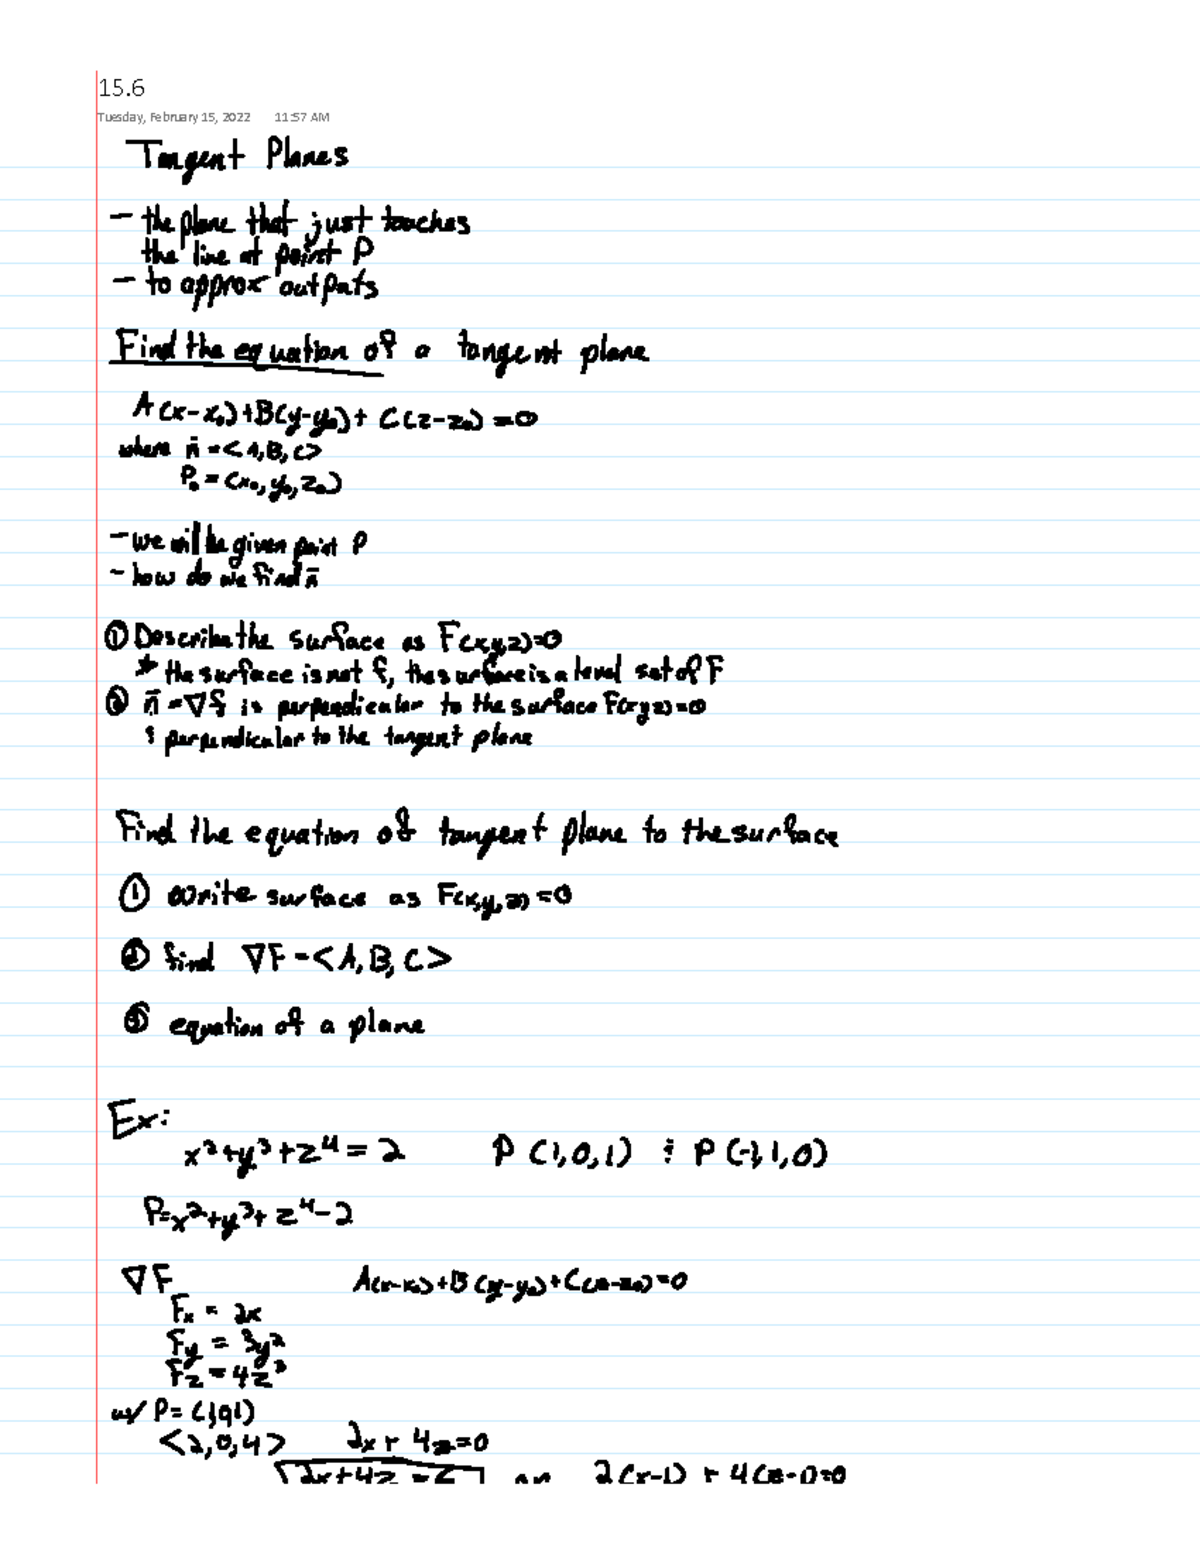 15.6
Tuesday, February 15, 2022 11:57 AM
Tangent Planes
- the plane that just touches
the line at point P
- to approx outputs
Find the equation of a tangent plane
A(x-x₀)+B(y-y₀)+C(z-z₀)=0
where n̄=<A,B,C>
P₀=(x₀,y₀,z₀)
- we will be given point P
- how do we find n̄
① Describe the surface as F(x,y,z)=0
* the surface is not f, the surface is a level set of F
② n̄=∇f is perpendicular to the surface F(x,y,z)=0
& perpendicular to the tangent plane
Find the equation of tangent plane to the surface
① write surface as F(x,y,z)=0
② find ∇F=<A,B,C>
③ equation of a plane
Ex:
x²+y³+z⁴=2 P(1,0,1) & P(-1,1,0)
F=x²+y³+z⁴-2
∇F A(x-x₀)+B(y-y₀)+C(z-z₀)=0
Fx = 2x
Fy = 3y²
Fz = 4z³
w/ P=(1,0,1)
<2,0,4> 2x+4z=0
2x+4z=6 or 2(x-1)+4(z-1)=0